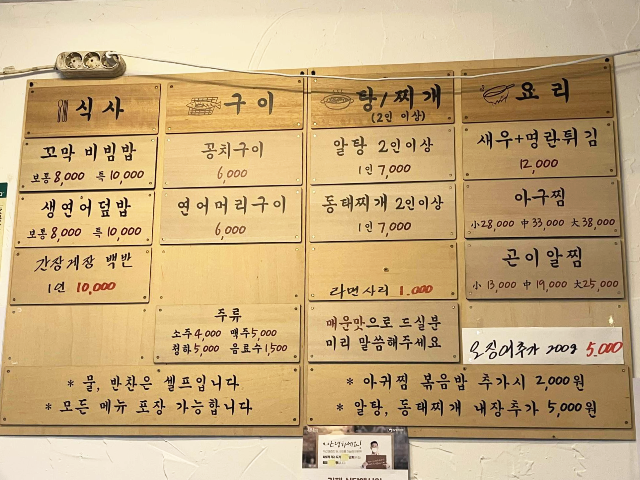 식사
꼬막 비빔밥
보통 8,000 특 10,000
생연어덮밥
보통 8,000 특 10,000
간장게장 백반
1인 10,000
구이
꽁치구이
6,000
연어머리구이
6,000
주류
소주 4,000 맥주 5,000
청하 5,000 음료수 1,500
탕/찌개
(2인 이상)
알탕 2인이상
1인 7,000
동태찌개 2인이상
1인 7,000
라면사리 1.000
매운맛으로 드실분
미리 말씀해주세요
요리
새우+명란튀김
12,000
아구찜
小 28,000 中 33,000 大 38,000
곤이알찜
小 13,000 中 19,000 大 25,000
오징어추가 200g 5,000
* 물, 반찬은 셀프입니다
* 모든 메뉴 포장 가능합니다
* 아귀찜 볶음밥 추가시 2,000원
* 알탕, 동태찌개 내장추가 5,000원
안녕하세요!